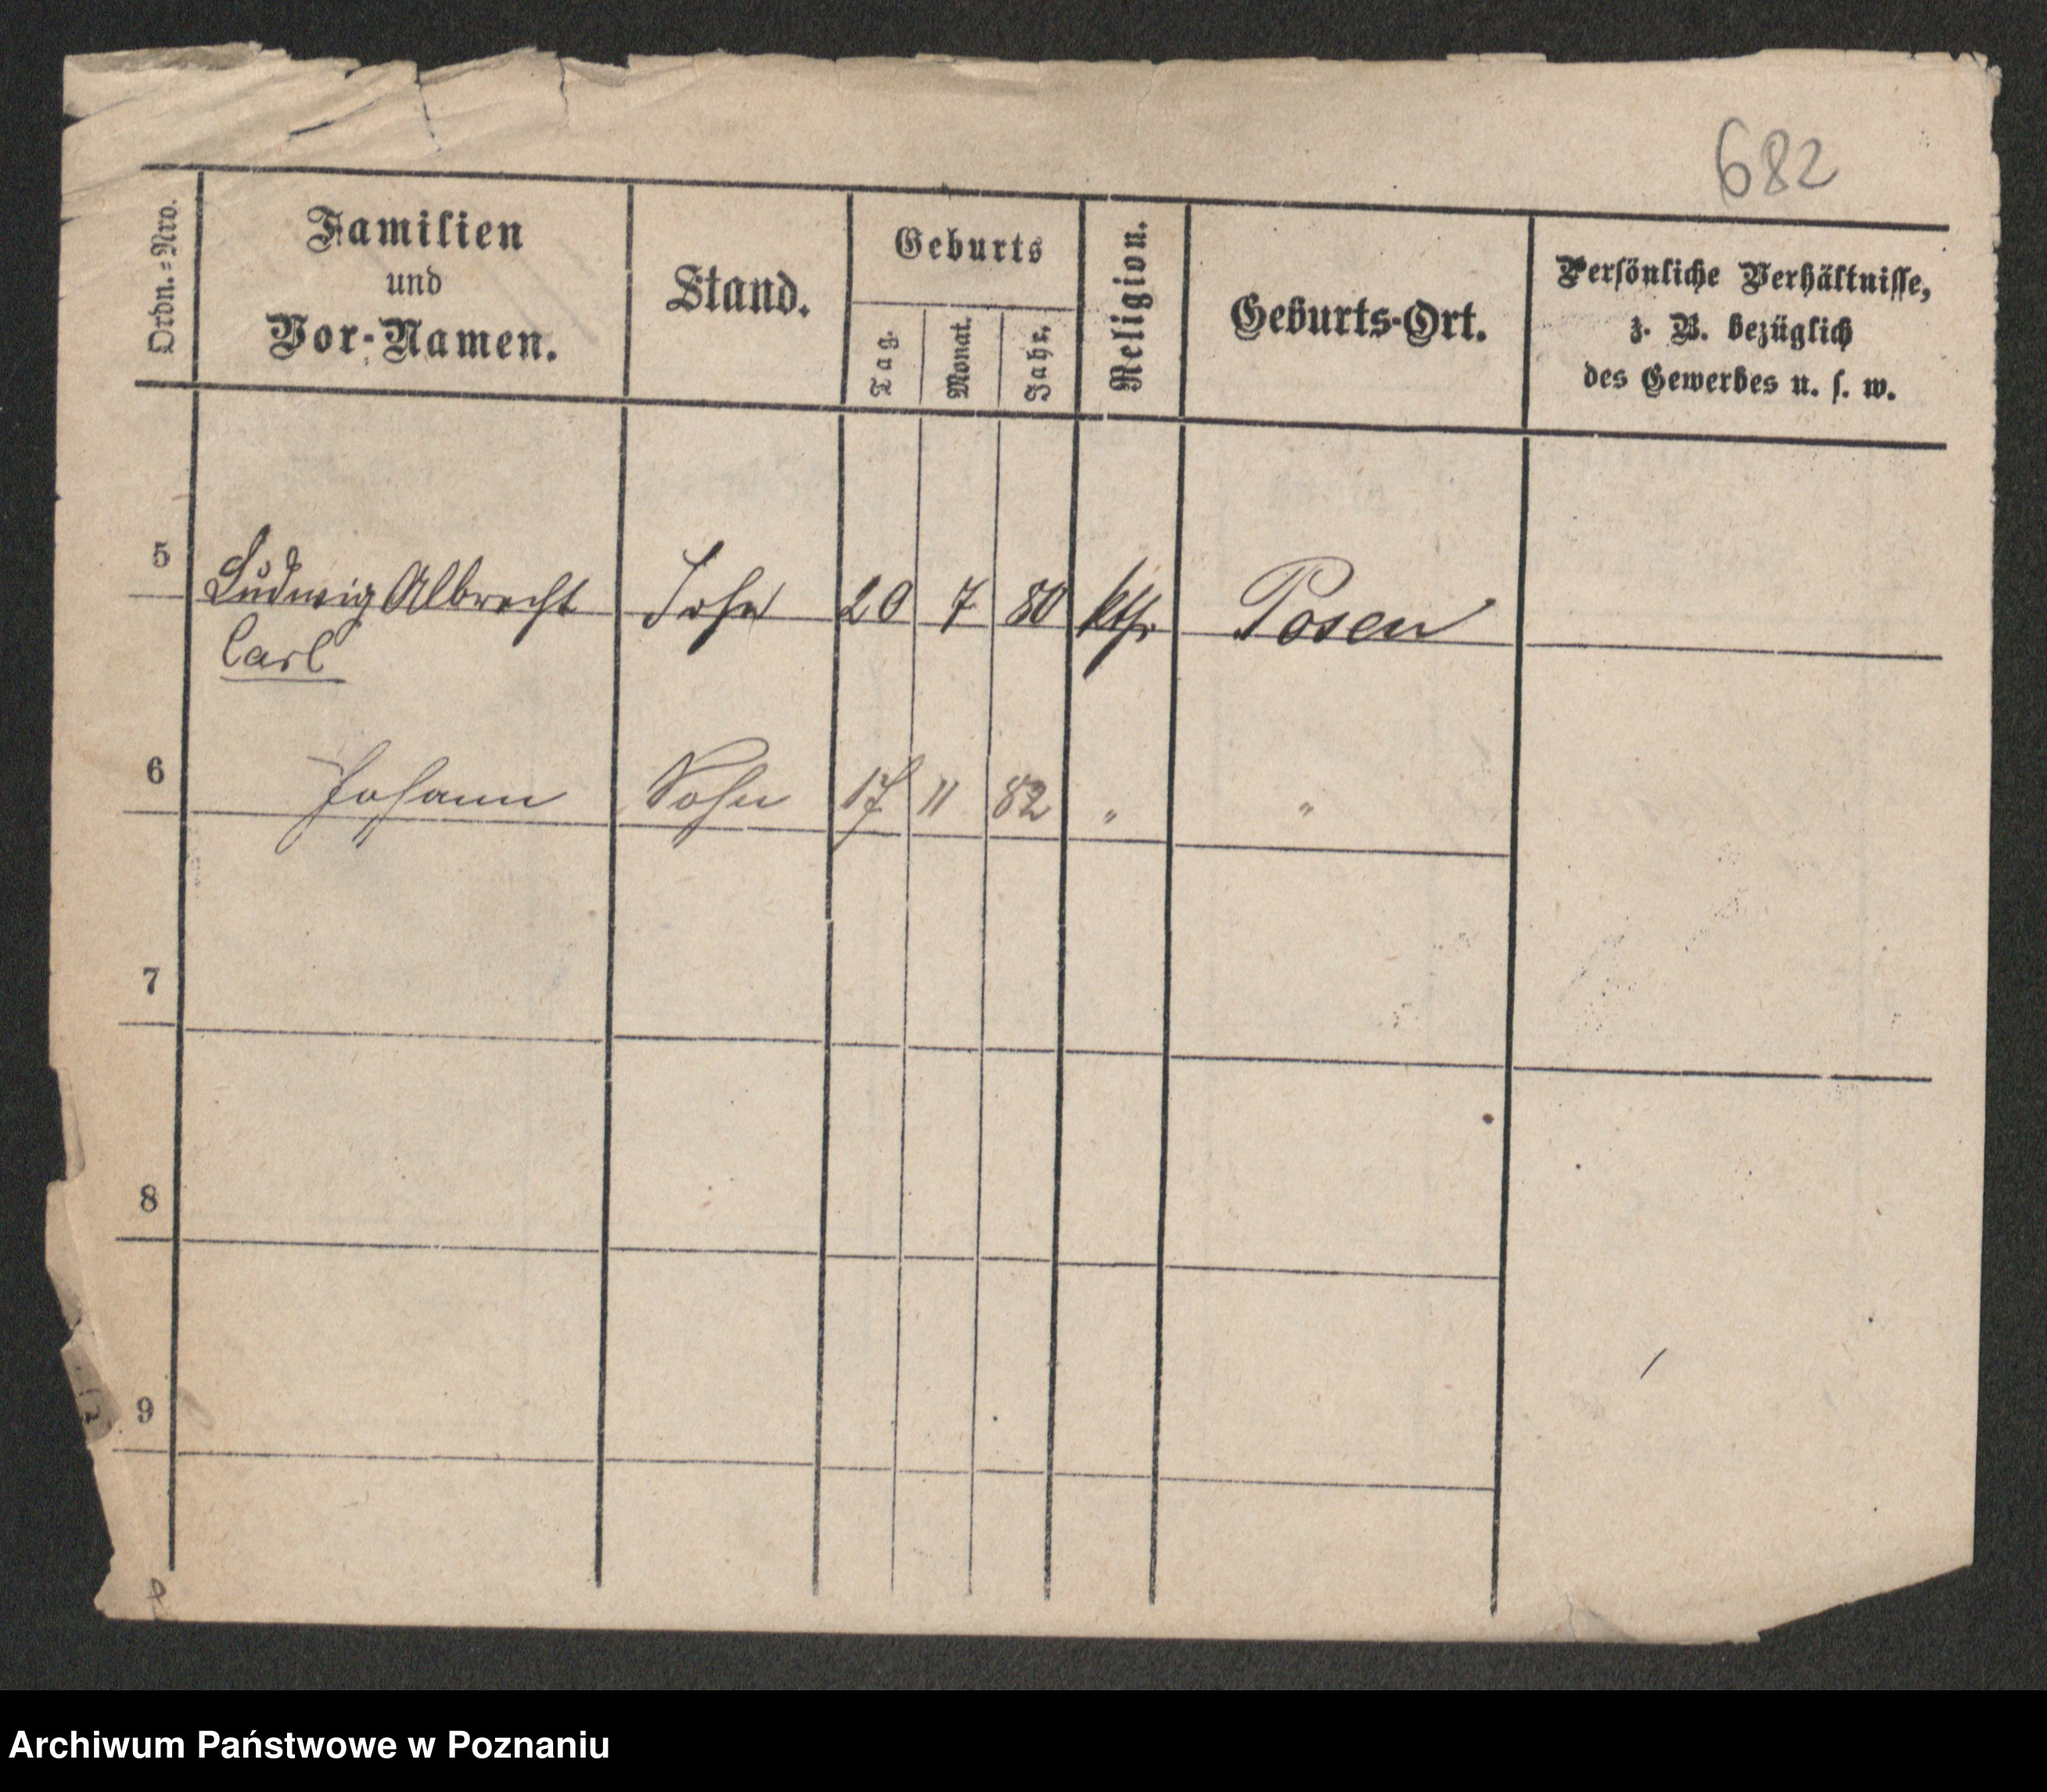 682
Ordn.=Nro.
Familien
und
Vor-Namen.
Stand.
Geburts
Tag.
Monat.
Jahr.
Religion.
Geburts-Ort.
Persönliche Verhältnisse,
z. B. bezüglich
des Gewerbes u. s. w.
5 Ludwig Albrecht Sohn 20 7 80 kth. Posen
Carl
6 Johann Sohn 17 11 82 " "
7
8
9
Archiwum Państwowe w Poznaniu